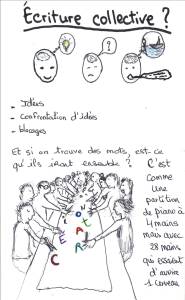 Écriture collective ?
?
- Idées
- confrontation d'idées
- blocages
Et si on trouve des mots, est-ce
qu'ils iront ensemble ?
C'est
comme
une
partition
de piano à
4 mains
mais avec
28 mains
qui essaient
d'ouvrir
1 cerveau